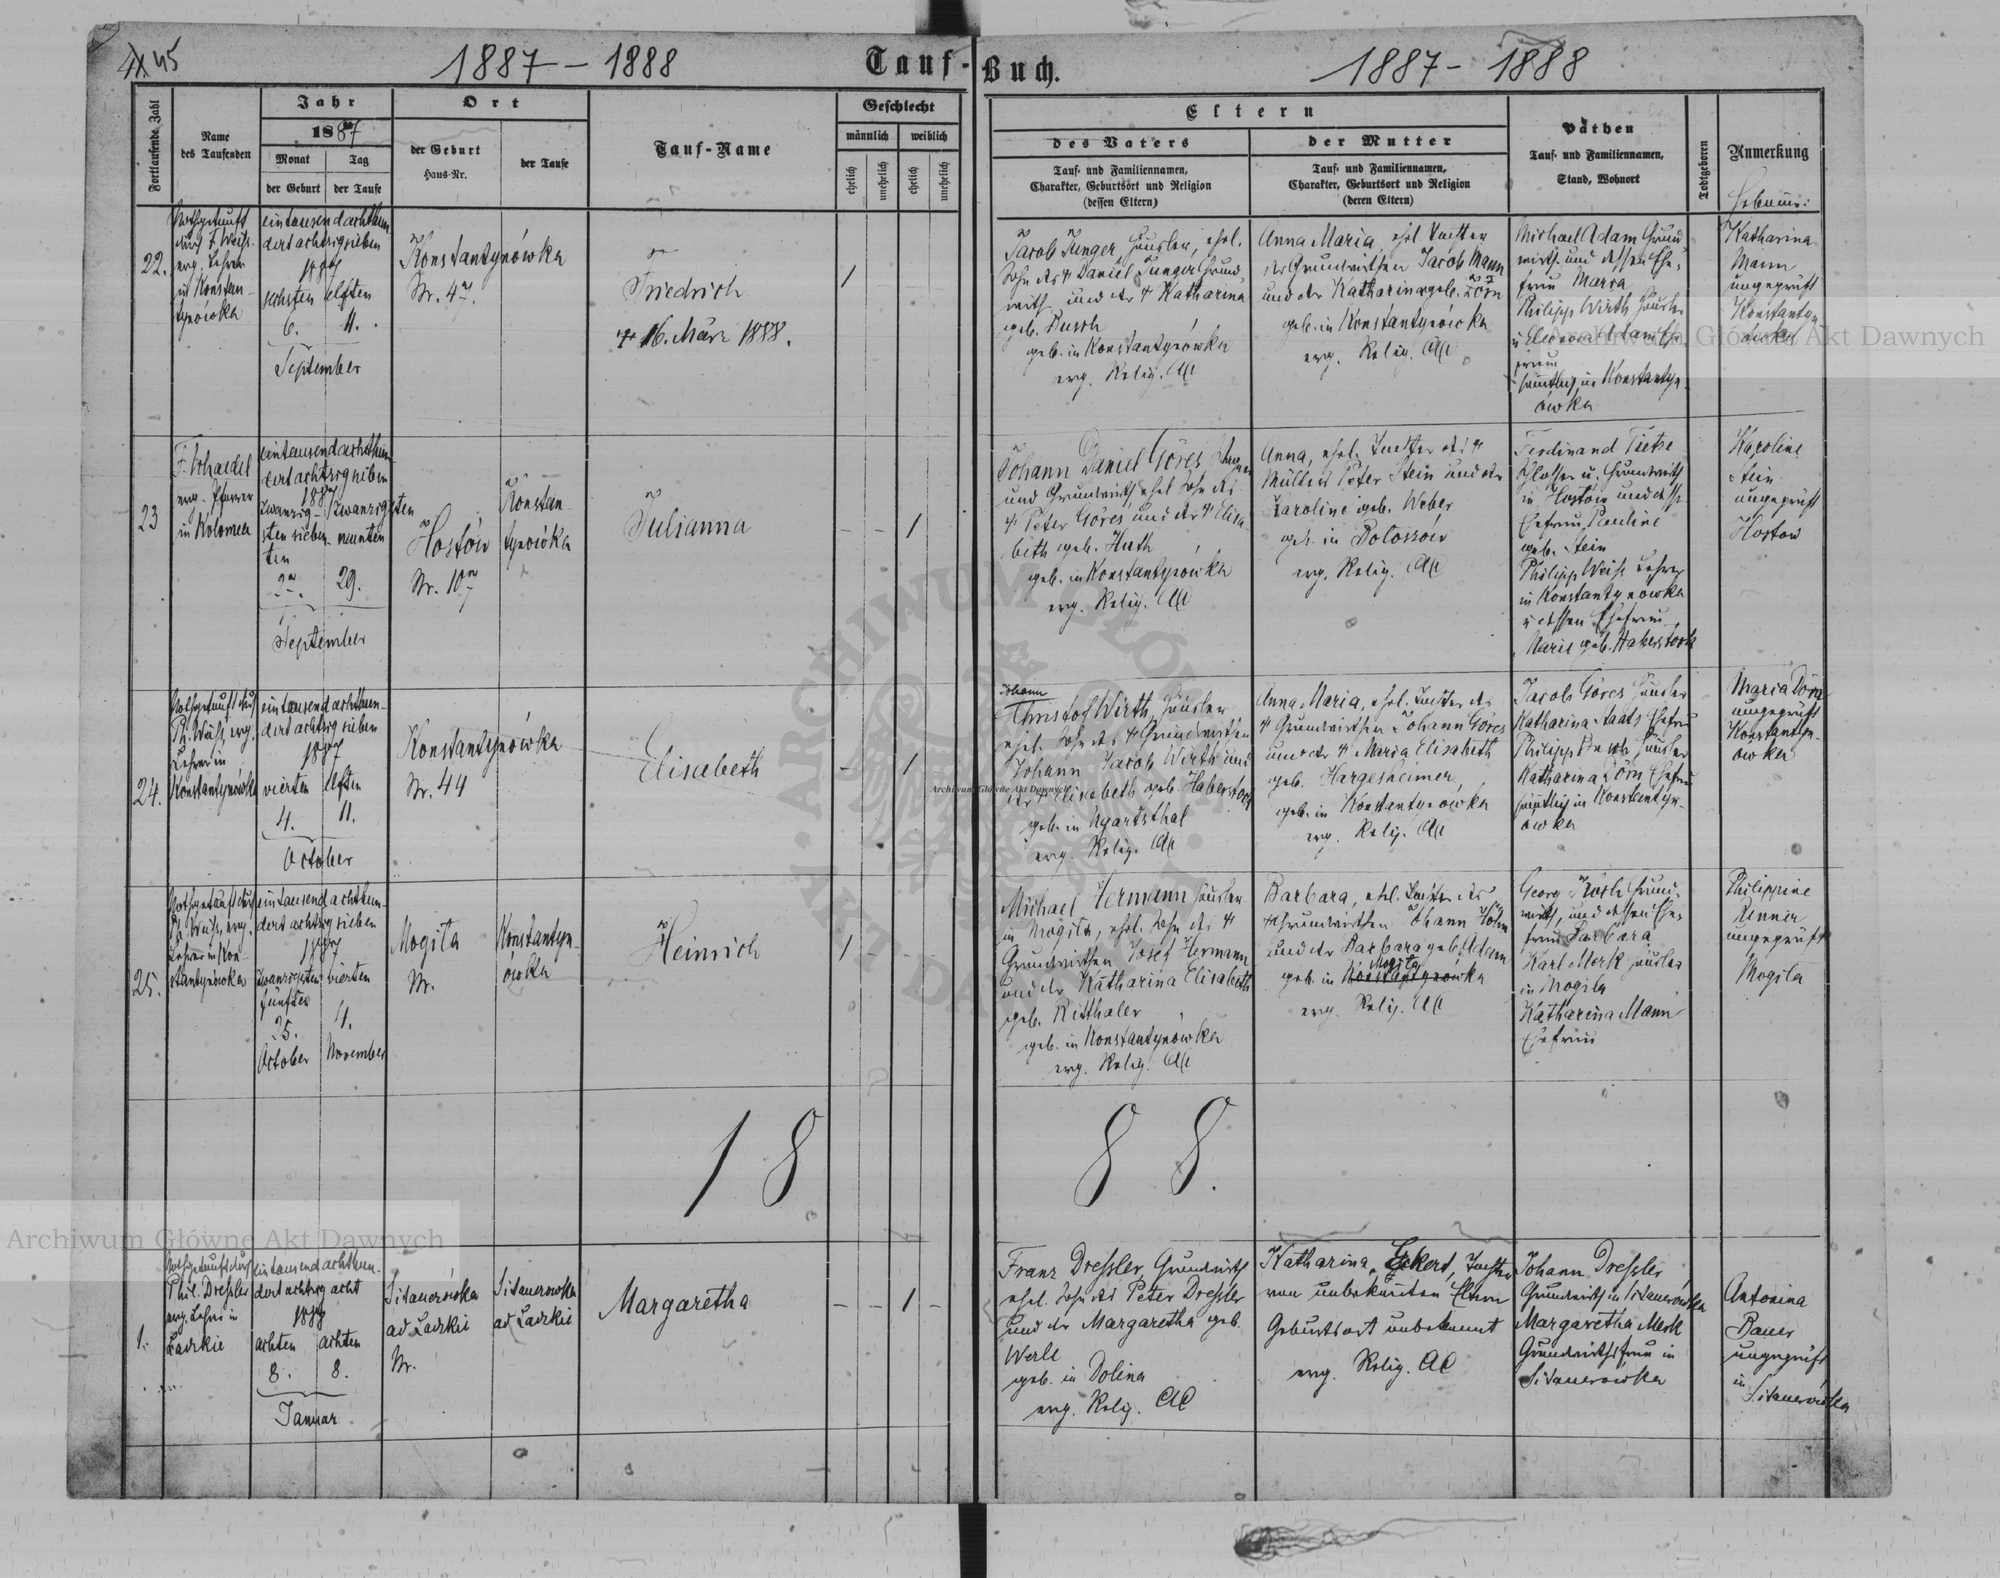 45
1887 - 1888
Tauf-Buch.
1887 - 1888
Fortlaufende Zahl
Name
des Taufenden
Jahr
1887
Monat
Tag
der Geburt
der Taufe
Ort
der Geburt
Haus-Nr.
der Taufe
Tauf-Name
Geschlecht
männlich
weiblich
ehelich
unehelich
ehelich
unehelich
Eltern
des Vaters
Tauf- und Familiennamen,
Charakter, Geburtsort und Religion
(dessen Eltern)
der Mutter
Tauf- und Familiennamen,
Charakter, Geburtsort und Religion
(deren Eltern)
Pathen
Tauf- und Familiennamen,
Stand, Wohnort
Todtgeboren
Anmerkung
22.
Nothgetauft
durch
evg. Lehrer
in Konstan-
tynówka
eintausendachthun-
dertachtzigsieben
1887
sechsten
elften
6.
11.
September
Konstantynówka
Nr. 47.
Friedrich
16. März 1888.
1
Jacob Junger, Häusler, ehel.
Sohn des † Daniel Junger Grund-
wirth und der † Katharina
geb. Busch
geb. in Konstantynówka
evg. Relig. AC
Anna Maria, ehel. Tochter
des Grundwirthen Jacob Mann
und der Katharina geb. Zörn
geb. in Konstantynówka
evg. Relig. AC
Michael Adam Grund-
wirth und dessen Ehe-
frau Maria
Philipp Wirth Häusler
sämtlich in Konstantyn-
ówka
Hebamme:
Katharina
Mann
ungeprüft
Konstantyn-
ówka
23
evg. Pfarrer
in Kolomea
eintausendachthun-
dertachtzigsieben
1887
Zwanzig-
sten sieben-
ten
Zwanzigsten
neunten
29.
September
Hostów
Nr. 10
Konstan-
tynówka
Julianna
- - 1
Johann Daniel Göres
und Grundwirth ehel. Sohn des
† Peter Göres und der † Elisa-
beth geb. Huth
geb. in Konstantynówka
evg. Relig. AC
Anna, ehel. Tochter des †
Müllers Peter Stein und der
Karoline geb. Weber
geb. in
evg. Relig. AC
Ferdinand Tietze
Schlosser u. Grundwirth
in Hostów und dess.
Ehefrau Pauline
geb. Stein
Philipp Weiss Lehrer
in Konstantynówka
u dessen Ehefrau
Marie geb. Haberstock
Karoline
Stein
ungeprüft
Hostow
24.
Nothgetauft durch
Ph. Weiss, evg.
Lehrer in
Konstantynówka
eintausendachthun-
dertachtzigsieben
1887
vierten
elften
4.
11.
October
Konstantynówka
Nr. 44
Elisabeth
- 1
Johann
Christof Wirth, Häusler
ehel. Sohn des † Grundwirthen
Johann Jacob Wirth und
der † Elisabeth geb. Haberstock
geb. in Ugartsthal
evg. Relig. AC
Anna Maria, ehel. Tochter des
† Grundwirthen Johann Göres
und der † Maria Elisabeth
geb. Hargesheimer
geb. in Konstantynówka
evg. Relig. AC
Jacob Göres Häusler
Katharina Staats Ehefrau
Philipp Busch Häusler
Katharina Zörn Ehefrau
sämtlich in Konstantyn-
ówka
Maria Zörn
ungeprüft
Konstantyn-
ówka
25.
Nothgetauft durch
Ph. Weiss, evg.
Lehrer in Kon-
stantynówka
eintausendachthun-
dertachtzigsieben
1887
Zwanzigsten
fünften
vierten
25.
4.
October
November
Mogila
Nr.
Konstantyn-
ówka
Heinrich
1 - -
Michael Hermann Häusler
in Mogila, ehel. Sohn des †
Grundwirthen Josef Hermann
und der Katharina Elisabeth
geb. Ritthaler
geb. in Konstantynówka
evg. Relig. AC
Barbara, ehel. Tochter des
Grundwirthen Johann Höhn
und der Barbara geb. Adam
Mogila
geb. in Konstantynówka
evg. Relig. AC
Georg Grund-
wirth, und dessen Ehe-
frau Barbara
Karl Merk Häusler
in Mogila
Katharina Mann
Ehefrau
Philippine
Renner
ungeprüft
Mogila
18 88.
1.
Nothgetauft durch
Phil. Dressler
evg. Lehrer in
Ladzkie
eintausendachthun-
dertachtzigacht
1888
achten
achten
8.
8.
Januar
Sitauerówka
ad Ladzkie
Nr.
Sitauerowka
ad Ladzkie
Margaretha
- - 1 -
Franz Dressler, Grundwirth
ehel. Sohn des Peter Dressler
und der Margaretha geb.
Werle
geb. in Dolina
evg. Relig. AC
Katharina Eckert, Tochter
von unbekannten Eltern
Geburtsort unbekannt
evg. Relig. AC
Johann Dressler,
Grundwirth in Sitauerówka
Margaretha Merk
Grundwirthsfrau in
Sitauerówka
Antonina
Bauer
ungeprüft
in
Sitauerówka
Archiwum Główne Akt Dawnych
Archiwum Główne Akt Dawnych
Archiwum Główne Akt Dawnych